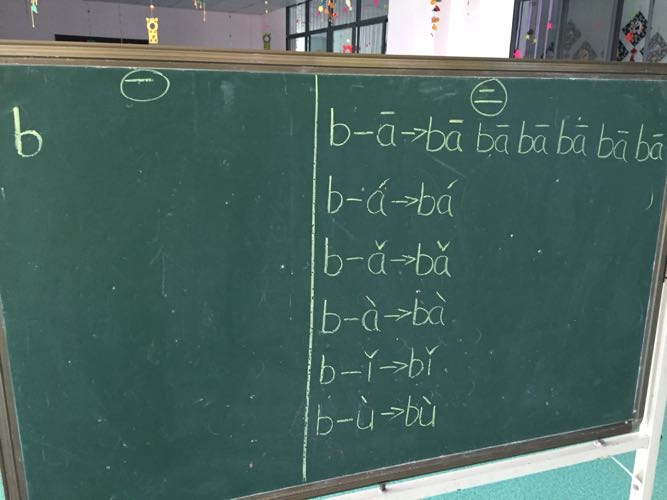 一
b
二
b-ā→bā bā bā bā bā bā
b-á→bá
b-ǎ→bǎ
b-à→bà
b-ǐ→bǐ
b-ù→bù